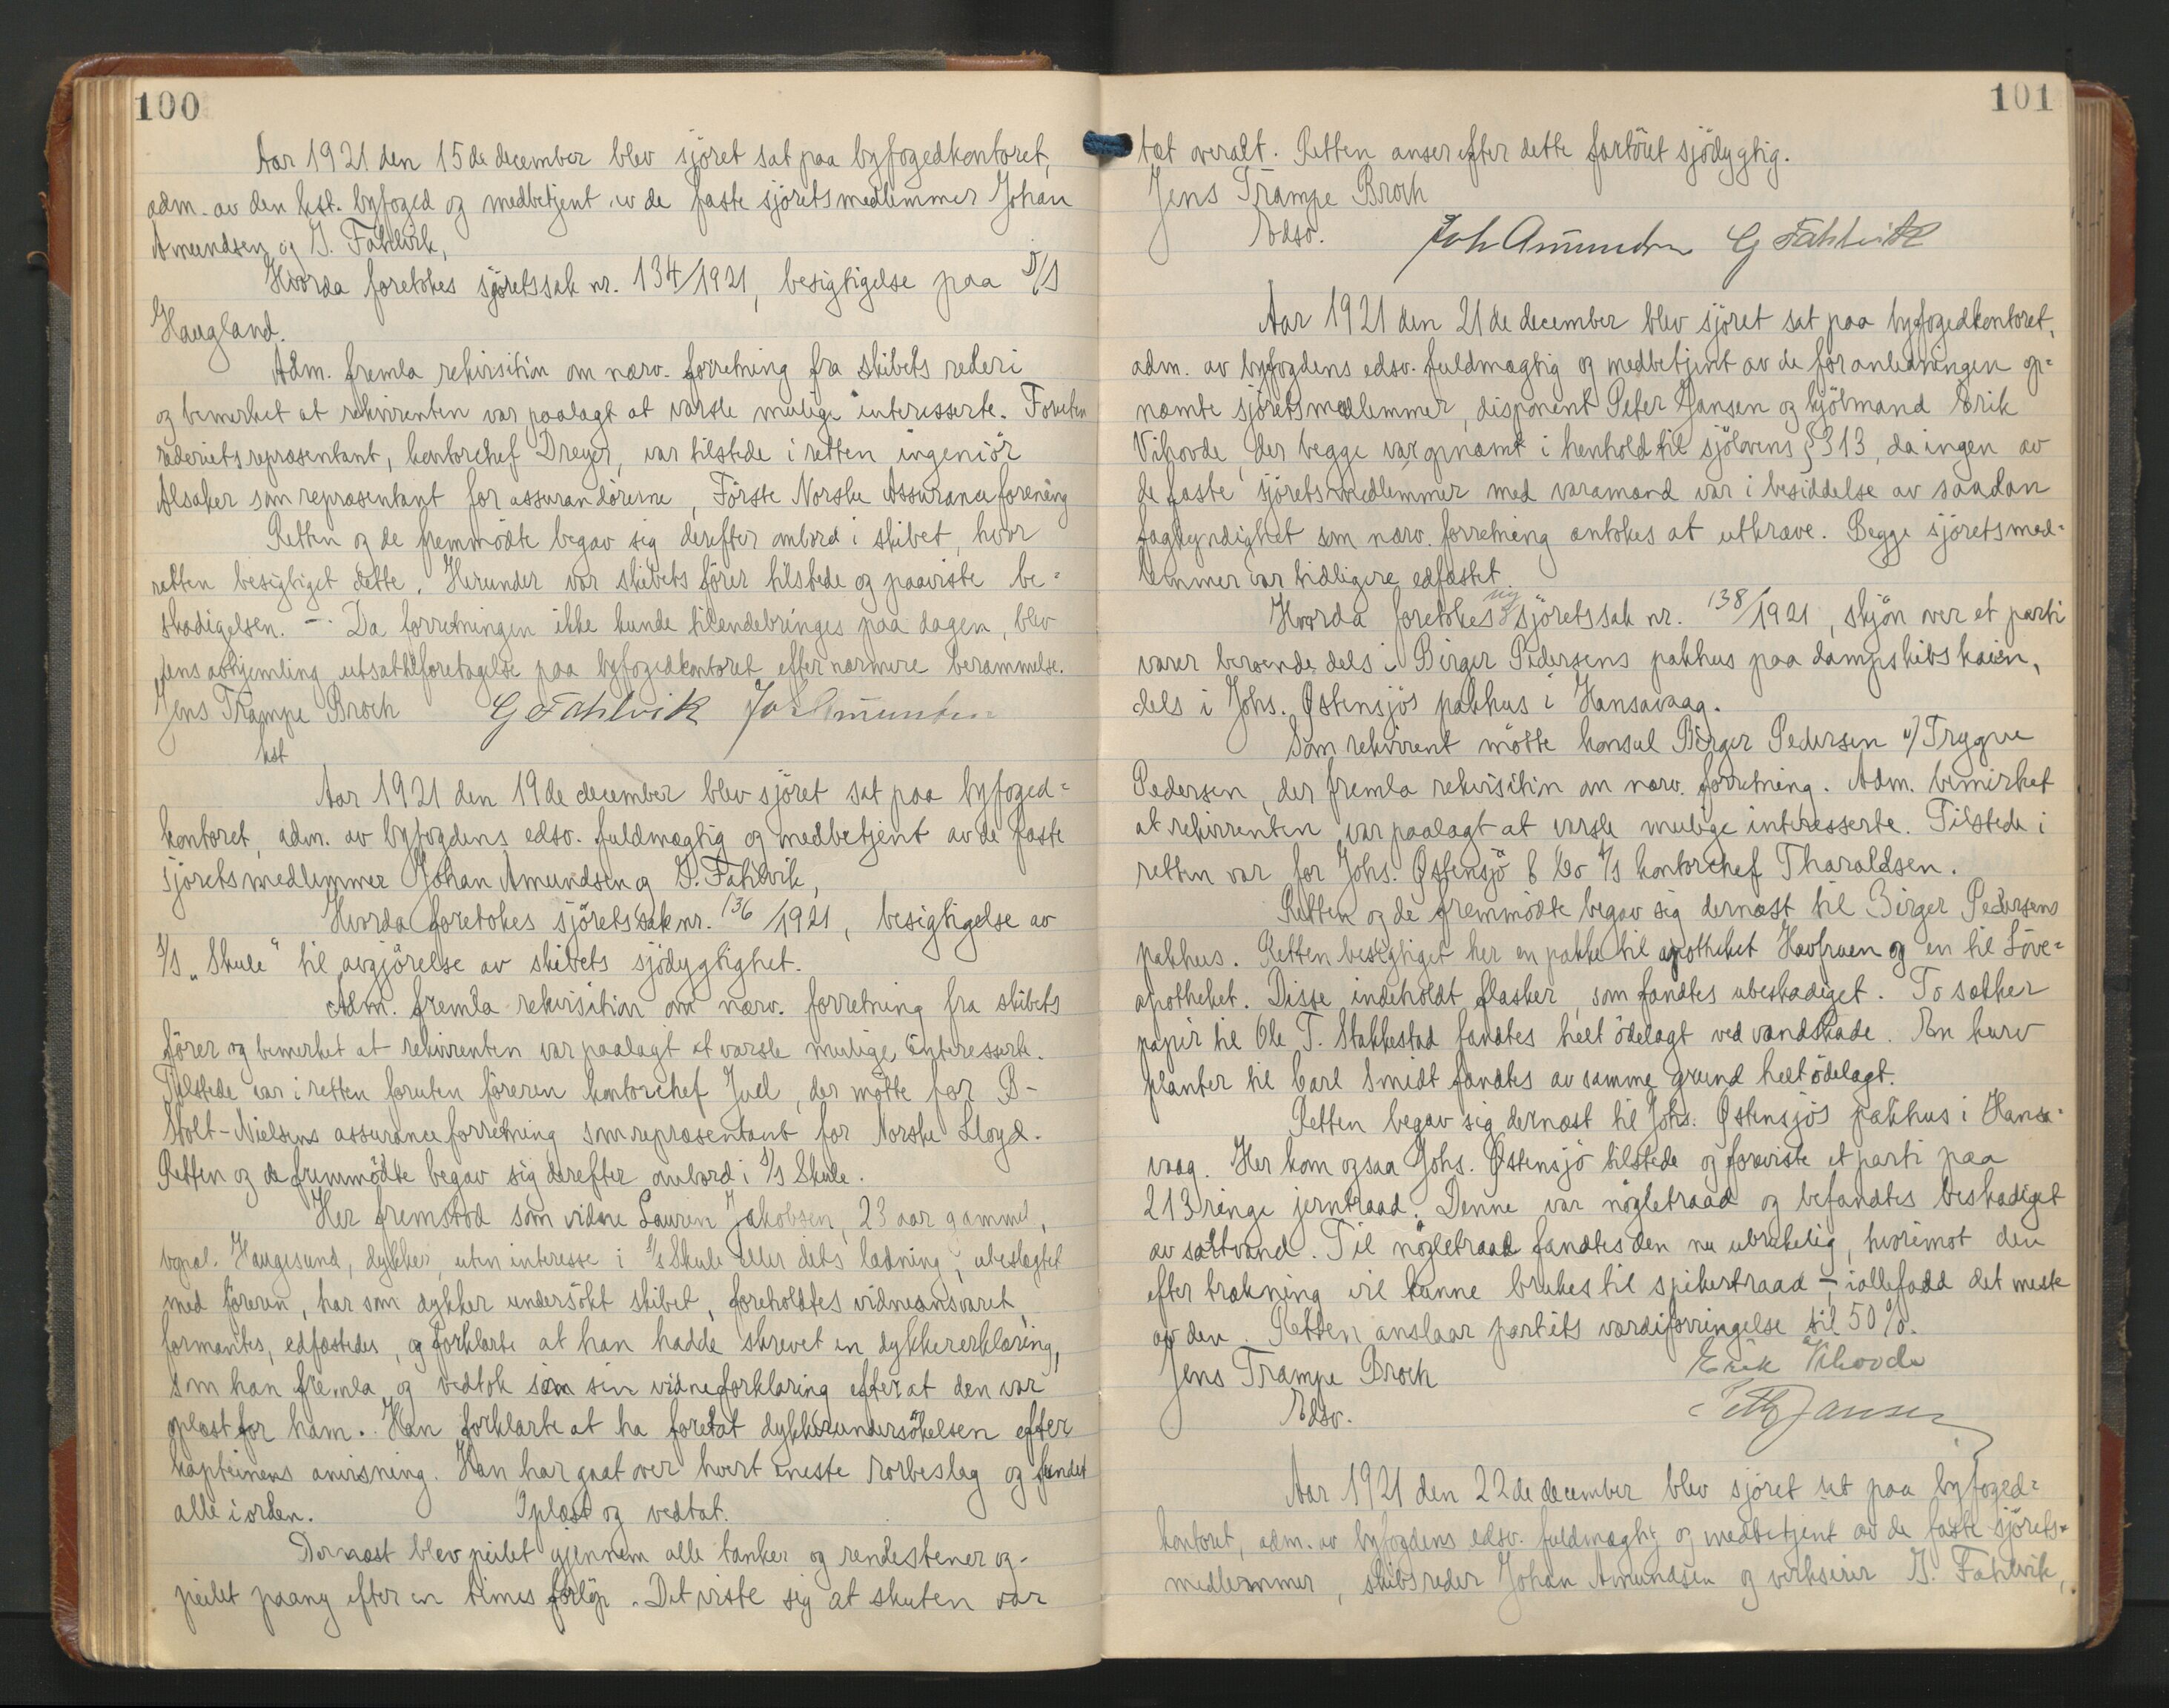 100
Aar 1921 den 15de december blev sjöret sat paa byfogedkontoret,
adm. av den kst. byfoged og medbetjent av de faste sjöretsmedlemmer Johan
Amundsen og G. Fahlvik,
Hvorda foretokes sjöretssak nr. 134/1921, besigtigelse paa D/S
Haugland.
Adm. fremla rekvisition om nærv. forretning fra skibets rederi
og bemerket at rekvirenten var paalagt at varsle mulige interesserte. Foruten
rederiets repræsentant, kontorchef Dreyer, var tilstede i retten ingeniör
Alsaker som repræsentant for assurandörerne, Förste Norske Assuranceforening
Retten og de fremmödte begav sig derefter ombord i skibet, hvor
retten besigtiget dette. Herunder var skibets förer tilstede og paaviste be=
skadigelsen. - Da forretningen ikke kunde tilendebringes paa dagen, blev
dens avhjemling utsat til foretagelse paa byfogedkontoret efter nærmere berammelse.
Jens Trampe Broch G Fahlvik Joh Amundsen
kst
Aar 1921 den 19de december blev sjöret sat paa byfoged=
kontoret, adm. av byfogdens edsv. fuldmægtig og medbetjent av de faste
sjöretsmedlemmer Johan Amundsen og G. Fahlvik,
Hvorda foretokes sjöretssak nr. 136/1921, besigtigelse av
S/S "Skule" til avgjörelse av skibets sjödygtighet.
Adm. fremla rekvisition om nærv. forretning fra skibets
förer og bemerket at rekvirenten var paalagt at varsle mulige interesserte.
Tilstede var i retten foruten föreren kontorchef Juel, der mötte for B-
Stolt-Nielsens assuranceforretning som repræsentant for Norske Lloyd.
Retten og de fremmödte begav sig derefter ombord i S/S Skule.
Her fremstod som vidne Lauren Jakobsen, 23 aar gammel,
bopæl Haugesund, dykker, uten interesse i S/S Skule eller dets ladning, ubeslegtet
med föreren, har som dykker undersökt skibet, foreholdtes vidneansvaret,
formantes, edfæstedes, og forklarte at han hadde skrevet en dykkererklæring,
som han fremla og vedtok som sin vidneforklaring efterat den var
oplæst for ham. Han forklarte at ha foretat dykkerundersökelsen efter
kapteinens anvisning. Han har gaat over hvert eneste rorbeslag og fundet
alle i orden. Oplæst og vedtat.
Dernæst blev peilet gjennem alle tanker og rendestener og
peilet paany efter en times forlöp. Det viste sig at skuten var
101
tæt overalt. Retten anser efter dette fartöiet sjödygtig.
Jens Trampe Broch
Edsv. Joh Amundsen G Fahlvik
Aar 1921 den 21de december blev sjöret sat paa byfogedkontoret,
adm. av byfogdens edsv. fuldmægtig og medbetjent av de for anledningen op=
nævnte sjöretsmedlemmer, disponent Peter Jansen og kjöbmand Erik
Vihovde, der begge var opnævnt i henhold til sjölovens § 313, da ingen av
de faste sjöretsmedlemmer med varamænd var i besiddelse av saadan
fagkyndighet som nærv. forretning antokes at utkræve. Begge sjöretsmed=
lemmer var tidligere edfæstet.
Hvorda foretokes ny sjöretssak nr. 138/1921, skjön over et parti
varer beroende dels i Birger Pedersens pakhus paa dampskibskaien,
dels i Johs. Østensjös pakhus i Hansavaag.
Som rekvirent mötte konsul Birger Pedersen v/ Trygve
Pedersen, der fremla rekvisition om nærv. forretning. Adm. bemerket
at rekvirenten var paalagt at varsle mulige interesserte. Tilstede i
retten var for Johs. Østensjö & Co A/S kontorchef Tharaldsen.
Retten og de fremmödte begav sig dernæst til Birger Pedersens
pakhus. Retten besigtiget her en pakke til apotheket Havfruen og en til Löve=
apotheket. Disse indeholdt flasker, som fandtes ubeskadiget. To sækker
papir til Ole T. Stakkestad fandtes helt ödelagt ved vandskade. En kurv
planter til Carl Smidt fandtes av samme grund helt ödelagt.
Retten begav sig dernæst til Johs. Østensjös pakhus i Hansa=
vaag. Her kom ogsaa Johs. Østensjö tilstede og foreviste et parti paa
213 ringe jerntraad. Denne var nögletraad og befandtes beskadiget
av saltvand. Til nögletraad fandtes den nu ubrukelig, hvorimot den
efter trækning vil kunne brukes til spikertraad - iallefald det meste
av den. Retten anslaar partiets værdiforringelse til 50%.
Jens Trampe Broch Erik Vihovde
Edsv. Peter Jansen
Aar 1921 den 22de december blev sjöret sat paa byfoged=
kontoret, adm. av byfogdens edsv. fuldmægtig og medbetjent av de faste sjörets=
medlemmer, skibsreder Johan Amundsen og verkseier G. Fahlvik,